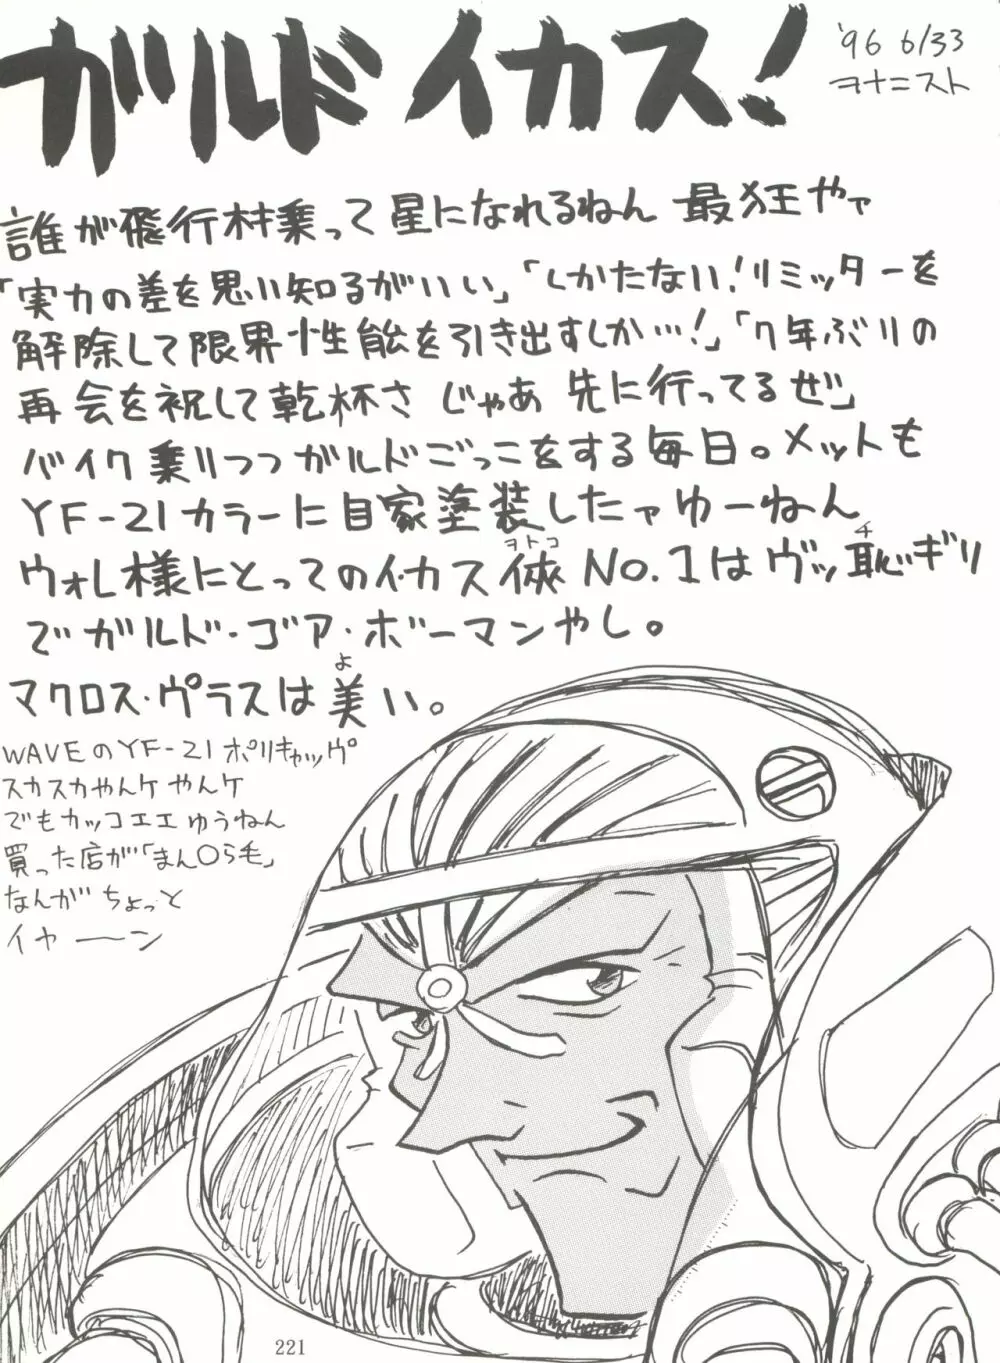 ガルド イカス!
'96 6/33
ヲナニスト
誰が飛行村乗って星になれるねん 最狂やァ
「実力の差を思い知るがいい」「しかたない!リミッターを
解除して限界性能を引き出すしか…!」「7年ぶりの
再会を祝して乾杯さ じゃあ 先に行ってるぜ」
バイク乗りつつガルドごっこをする毎日。メットも
YF-21カラーに自家塗装したァゆーねん
ウォレ様にとってのイカス侠 No.1はヴッ恥ギリ
ヲトコ
チ
でガルド・ゴア・ボーマンやし。
マクロス・プラスは美い。
よ
WAVEのYF-21 ポリキャップ
スカスカやんケ やんケ
でもカッコエエ ゆうねん
買った店が「まん〇らも」
なんが ちょっと
イヤーーン
221